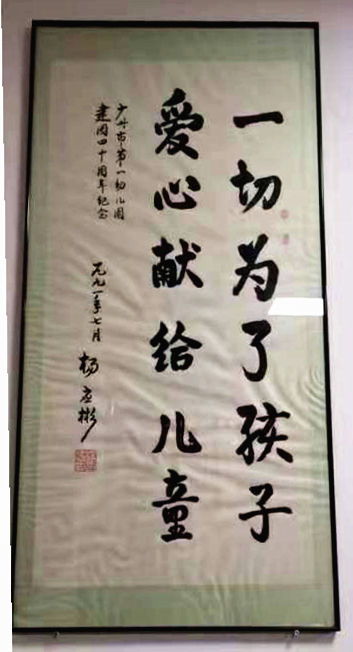 一切为了孩子
爱心献给儿童
广州市第一幼儿园
建园四十周年纪念
一九九一年七月
杨应彬